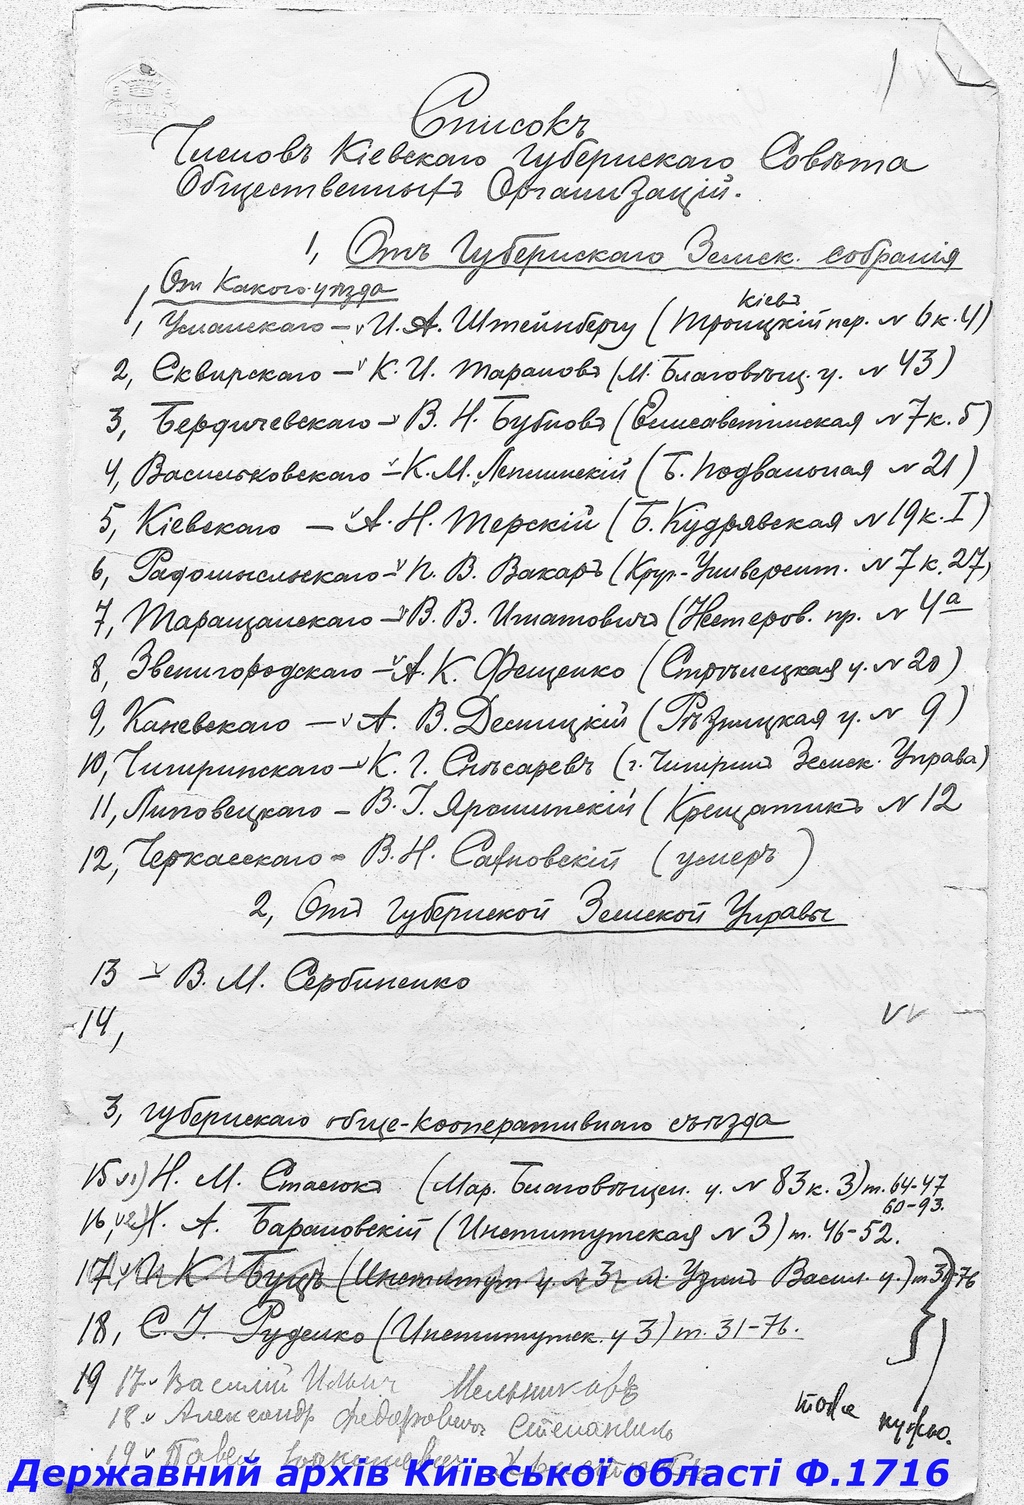 Списокъ
Членовъ Кіевскаго Губернскаго Совѣта
Общественныхъ Организацій.
1, Отъ Губернскаго Земск. собранія
От Какого уѣзда
1, Уманскаго – И. А. Штейнбергу (Кіевъ Троицкій пер. № 6 к. 4)
2, Сквирскаго – К. И. Тарановъ (М. Благовѣщ. у. № 43)
3, Бердичевскаго – В. Н. Бубновъ (Елисаветинская № 7 к. 5)
4, Васильковскаго – К. М. Лепшинскій (Б. Подвальная № 21)
5, Кіевскаго – А. Н. Терскій (Б. Кудрявская № 19 к. I)
6, Радомысльскаго – П. В. Вакаръ (Круг.-Университ. № 7 к. 27)
7, Таращанскаго – В. В. Игнатовичъ (Нестеров. пр. № 4а
8, Звенигородскаго – А. К. Фещенко (Стрѣлецкая у. № 20)
9, Каневскаго – А. В. Десницкій (Рѣзницкая у. № 9)
10, Чигиринскаго – К. Г. Слѣсаревъ (г. Чигиринъ Земск. Управа)
11, Липовецкаго – В. І. Ярошинскій (Крещатикъ № 12
12, Черкасскаго – В. Н. Сахновскій (умеръ)
2, Отъ Губернской Земской Управы
13 – В. М. Сербиненко
14,
3, Губернскаго обще-кооперативнаго съѣзда
15 1) Н. М. Стасюкъ (Мар. Благовѣщен. у. № 83 к. 3) т. 64-47
60-93.
16, 2) Х. А. Барановскій (Институтская № 3) т. 46-52.
17, И К Буцъ (Институт у. № 3 Васил. у.) т 31-76
18, С. І. Руденко (Институтск. у 3) т. 31-76.
19 17 Василій Ильич Мельниковъ
18 Александр Федоровичъ Степанель
тоже нужно.
19 Павел
Державний архів Київської області Ф.1716